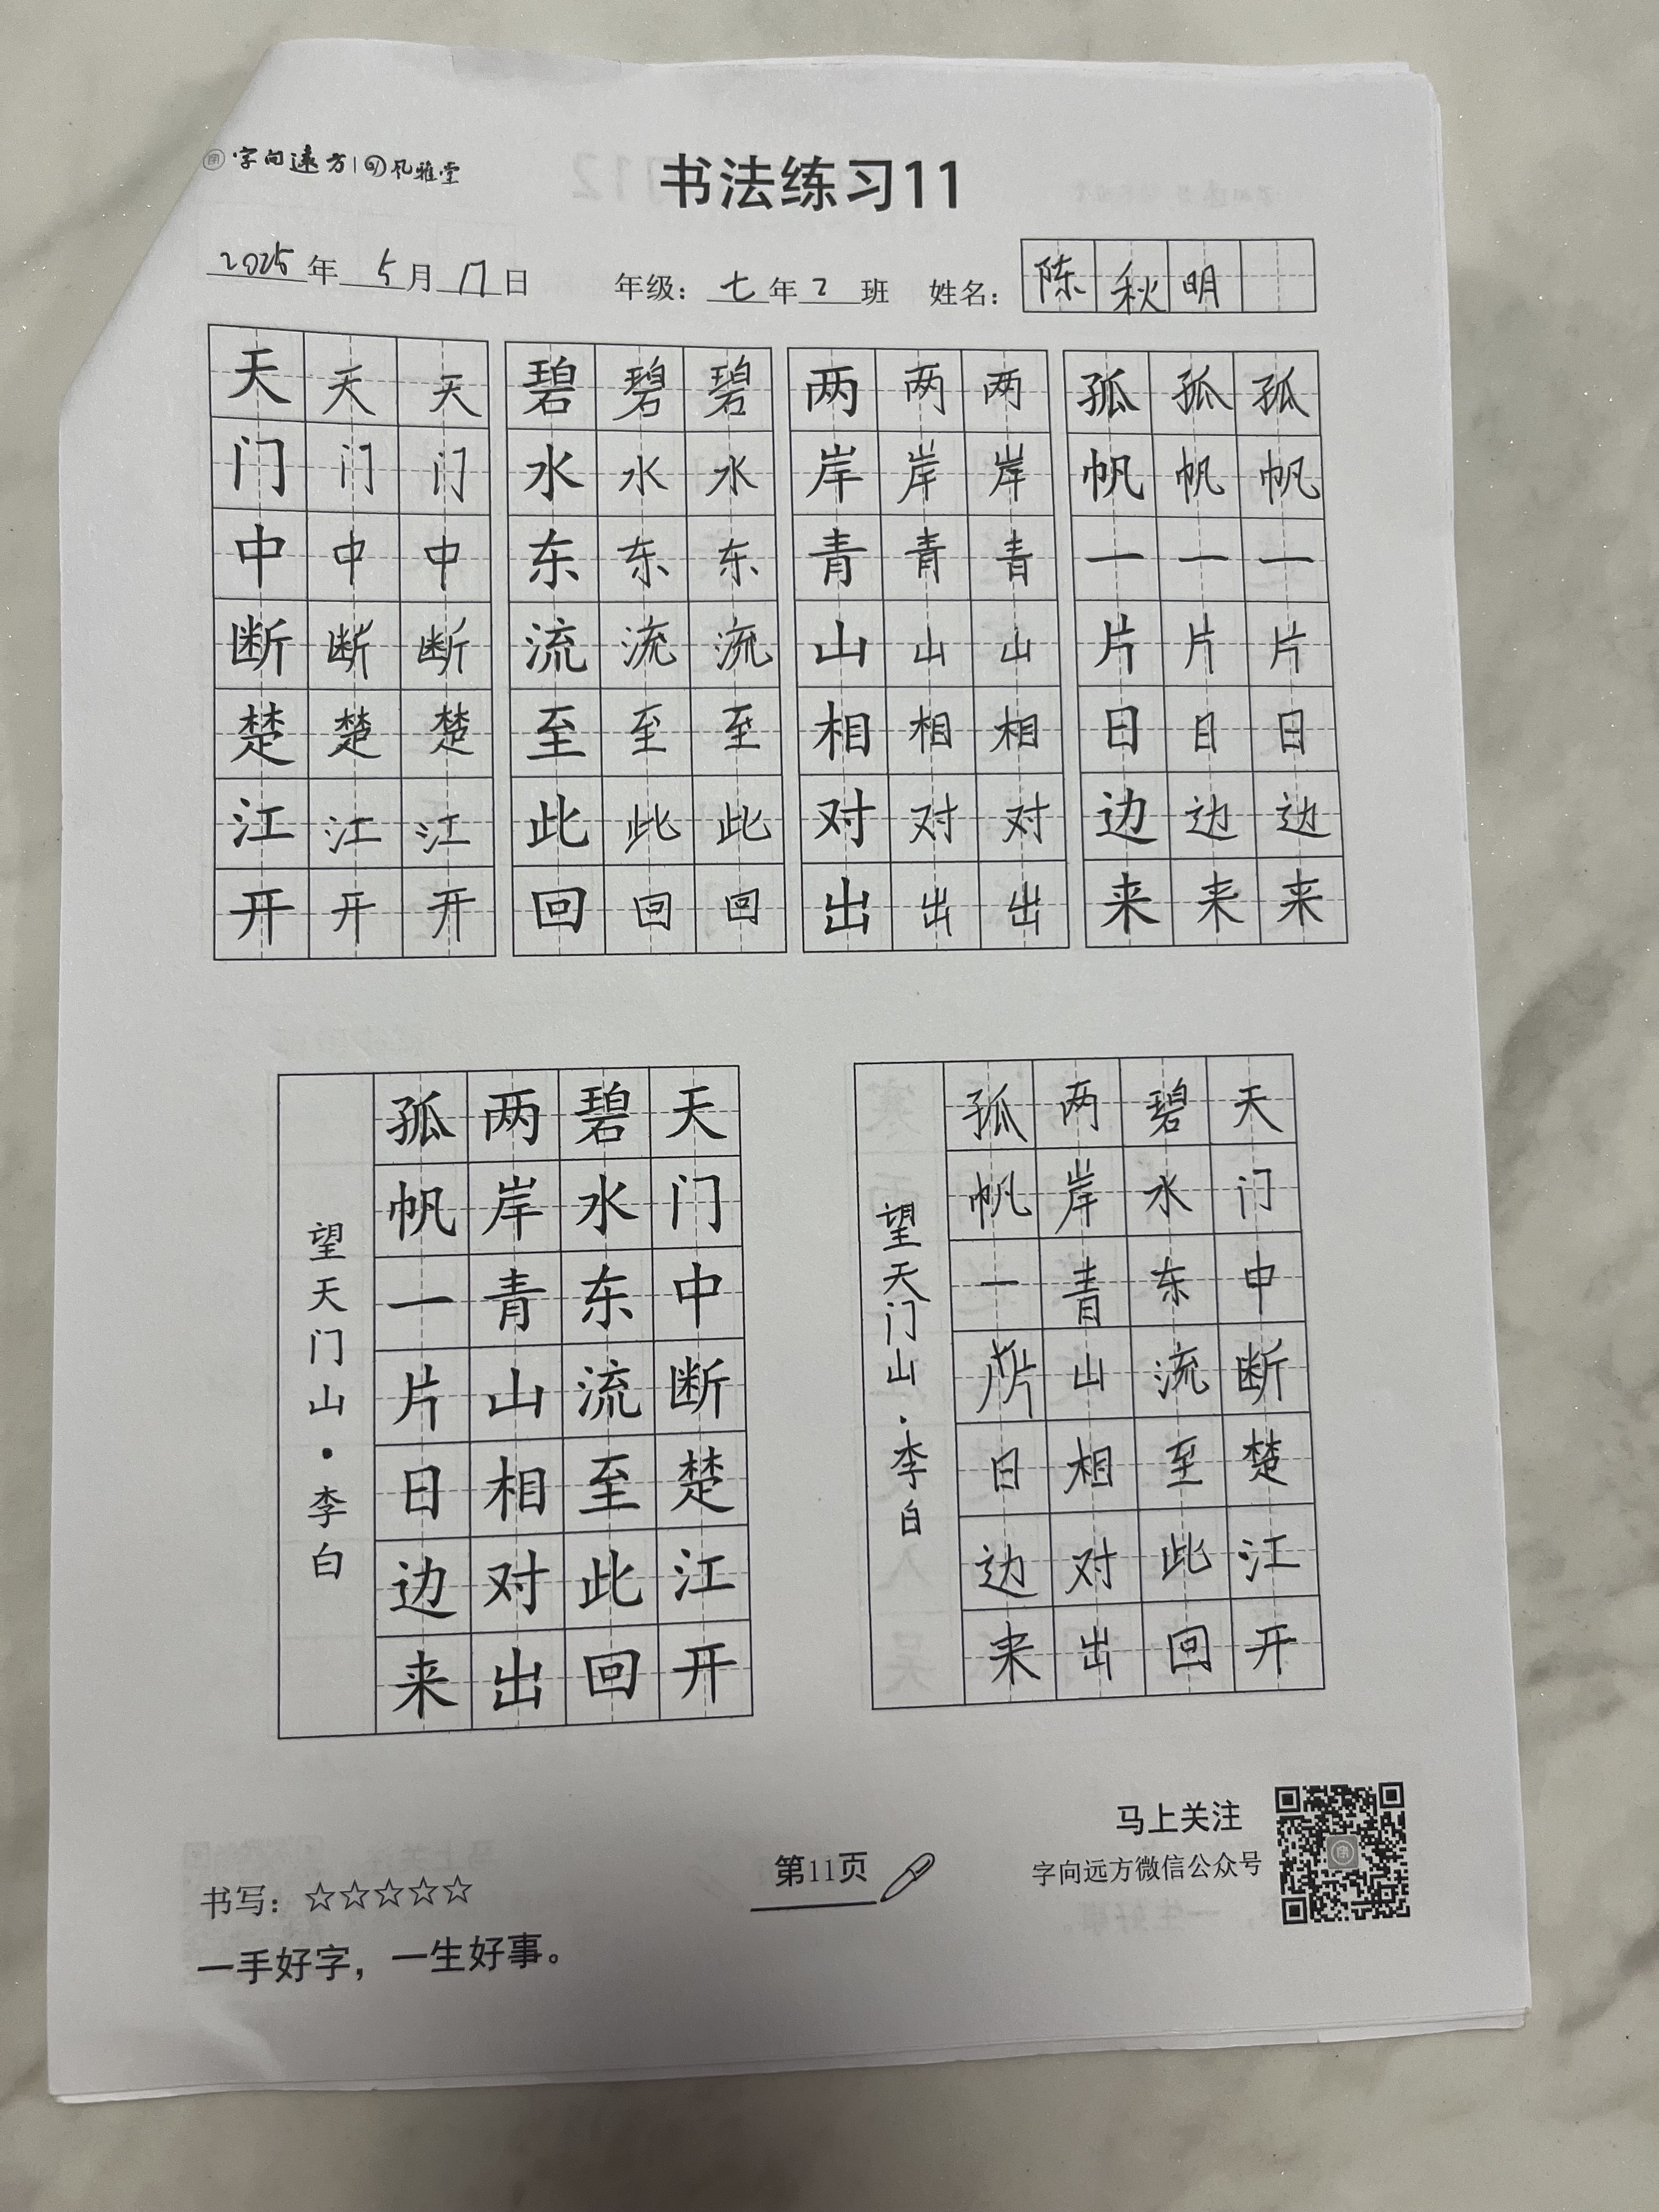 字向远方|风雅堂
书法练习11
2025年5月17日 年级：七年2班 姓名：陈秋明
天天天 碧碧碧 两两两 孤孤孤
门门门 水水水 岸岸岸 帆帆帆
中中中 东东东 青青青 一一一
断断断 流流流 山山山 片片片
楚楚楚 至至至 相相相 日日日
江江江 此此此 对对对 边边边
开开开 回回回 出出出 来来来
天门中断楚江开
碧水东流至此回
两岸青山相对出
孤帆一片日边来
望天门山·李白
天门中断楚江开
碧水东流至此回
两岸青山相对出
孤帆一片日边来
望天门山·李白
书写：☆☆☆☆☆
一手好字，一生好事。
第11页
马上关注
字向远方微信公众号